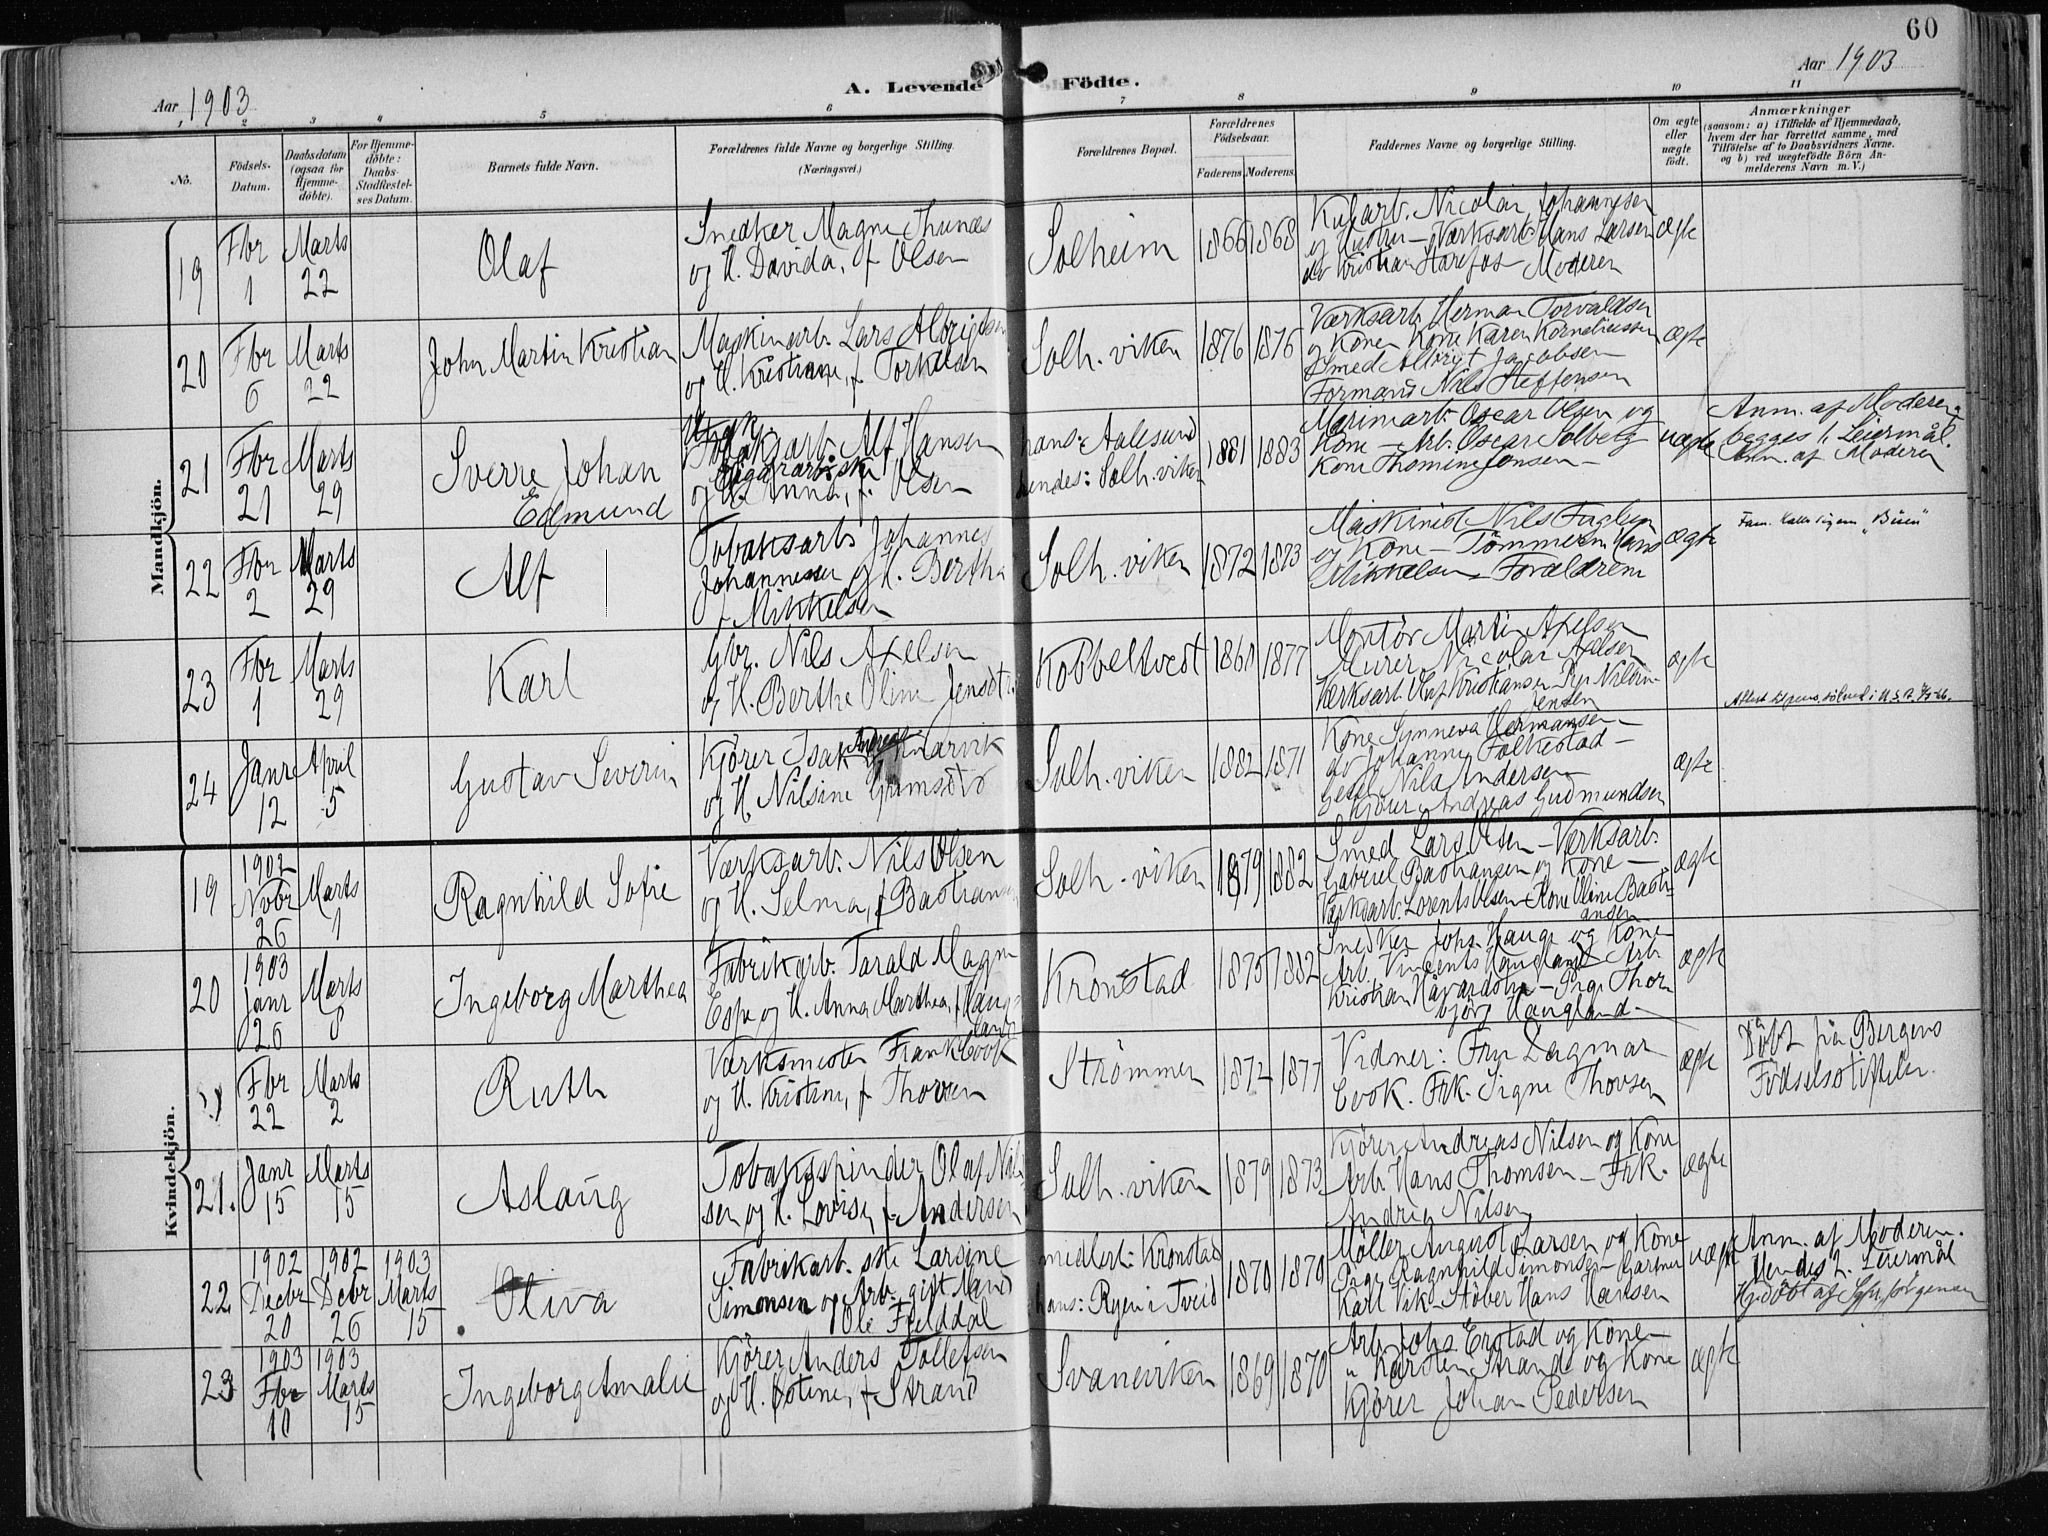 60
Aar 1903
A. Levende Födte.
Aar 1903
1 2 3 4 5 6 7 8 9 10 11
No.
Födsels-Datum.
Daabsdatum (ogsaa for Hjemme-döbte).
For Hjemme-döbte: Daabs-Stadfæstel-ses Datum.
Barnets fulde Navn.
Forældrenes fulde Navne og borgerlige Stilling.
(Næringsvei.)
Forældrenes Bopæl.
Forældrenes Födselsaar.
Faderens. Moderens.
Faddernes Navne og borgerlige Stilling.
Om ægte eller uægte født.
Anmærkninger
(saasom: a) i Tilfælde af Hjemmedaab,
hvem der har forrettet samme, med
Tilföielse af to Daabsvidners Navne.
og b) ved uægtefödte Börn An-
melderens Navn m. V.)
Mandkjön.
19
Fbr 1
Marts 22
Olaf
Snedker Magne Thunes
og H. Davida, f. Olsen
Solheim
1866 1868
Nicolai Johannesen
og Hustru – Værksarb. Hans Larsen
Kristian – Moderen
ægte
20
Fbr 6
Marts 22
John Martin Kristian
Maskinarb. Lars Albrigtsen
og H. Kristiane, f. Torkelsen
Solh. viken
1876 1876
Værksarb. Herman Torvaldsen
og Kone Kone Karen Korneliussen
Smed Albrigt Jacobsen
Formand Nils Steffensen
ægte
21
Fbr 21
Marts 29
Sverre Johan
Edmund
Alf Hansen
og Anna, f. Olsen
hans: Aalesund
hendes: Solh. viken
1881 1883
Oscar Olsen og
Kone – Arb. Oscar Solberg
Kone Thomine Jensen –
uægte
Anm. af Moderen
begges 1. Leiermål.
Anm. af Moderen
22
Fbr 2
Marts 29
Alf
Tobaksarb. Johannes
Johannessen og H. Bertha
f. Mikkelsen
Solh. viken
1872 1873
Maskinist Nils
og Kone – Tömmerm. Hans
Mikkelsen – Forældrene
ægte
Fam. kalder sig nu "Buen"
23
Fbr 1
Marts 29
Karl
Gbr. Nils Axelsen
og H. Berthe Oline Jensdtr.
Kobbeltvedt
1860 1877
Montör Martin Axelsen
Murer Nicolai Axelsen
Værksarb. Olaf Kristiansen Pge Nildine
Jensen
ægte
24
Janr 12
April 5
Gustav Severin
Kjører Isak Andreas
og H. Nilsine
Solh. viken
1882 1871
Kone Synneva Hermansen –
Johanne Folkestad –
Nils Andersen –
Kjörer Andreas Gudmundsen
ægte
Kvindekjön.
19
1902 Nvbr 26
Marts 1
Ragnhild Sofie
Værksarb. Nils Olsen
og H. Selma, f. Bastiansen
Solh. viken
1879 1882
Smed Lars Olsen – Værksarb.
Gabriel Bastiansen og Kone –
Værksarb. Lorents Olsen – Kone Oline Basti-
ansen
ægte
20
1903 Janr 26
Marts 8
Ingeborg Marthea
Fabrikarb. Tarald Magn
Espe og H. Anna Marthea, f. Haug-
land
Kronstad
1875 1882
Snedker Johs. Hauge og Kone –
Arb. Vincents Haugland – Arb.
Kristian Håvardstn – Pige Thor-
björg Haugland –
ægte
Fbr 22
Marts 2
Ruth
Værksmester Frank Cook
og H. Kristine, f. Thorsen
Strömmen
1872 1877
Vidner: Fru Dagmar
Cook. Frk. Signe Thorsen
ægte
Döbt på Bergens
Födselsstiftelse.
21.
Janr 15
Marts 15
Aslaug
Tobakspinder Olaf Nil-
sen og H. Lovise, f. Andersen
Solh. viken
1879 1873
Kjörer Andreas Nilsen og Kone
Arb. Hans Thomsen – Frk.
Andrea Nilsen
ægte
22
1902 Decbr 20
1902 Debr 26
1903 Marts 15
Oliva
Fabrikarb. ske Larsine
Simonsen og Arb. gift Mand
Ole Fjelddal
midlert: Kronstad
hans: Ryen i Tveid
1870 1870
Möller August Larsen og Kone
Pige Ragnhild Simonsen – Gartner
Karl Vik – Støber Hans Hansen
uægte
Anm. af Moderen.
Hendes 2. Leiermål
Hj.döbt af Jörgensen
23
1903 Fbr 10
1903 Marts 15
Ingeborg Amalie
Kjörer Anders Tollefsen
og H. Ostine, f. Strand
Svaneviken
1869 1870
Arb. Johs. Erstad og Kone –
" Karsten Strand og Kone
Kjörer Johan Pedersen
ægte